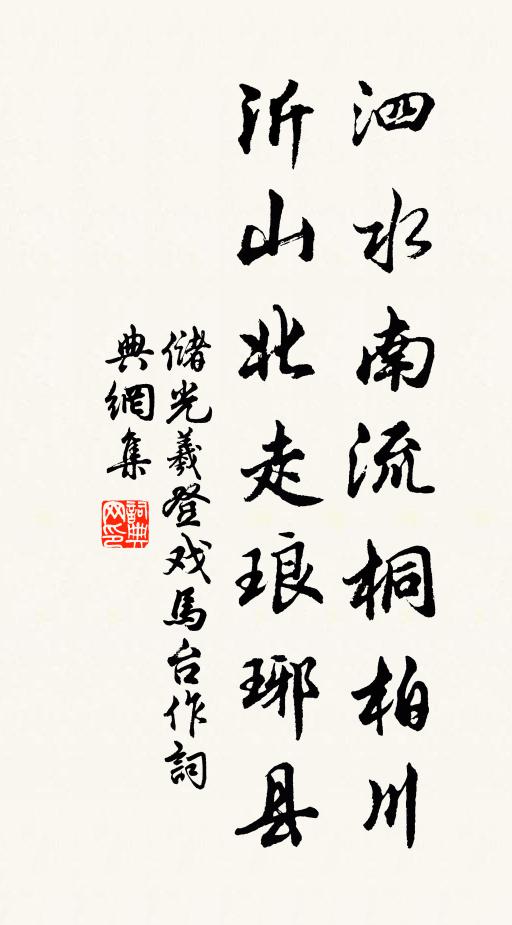 泗水南流桐柏川
沂山北走琅琊县
儲光羲登戏馬台作詞
典網集
詞典网印